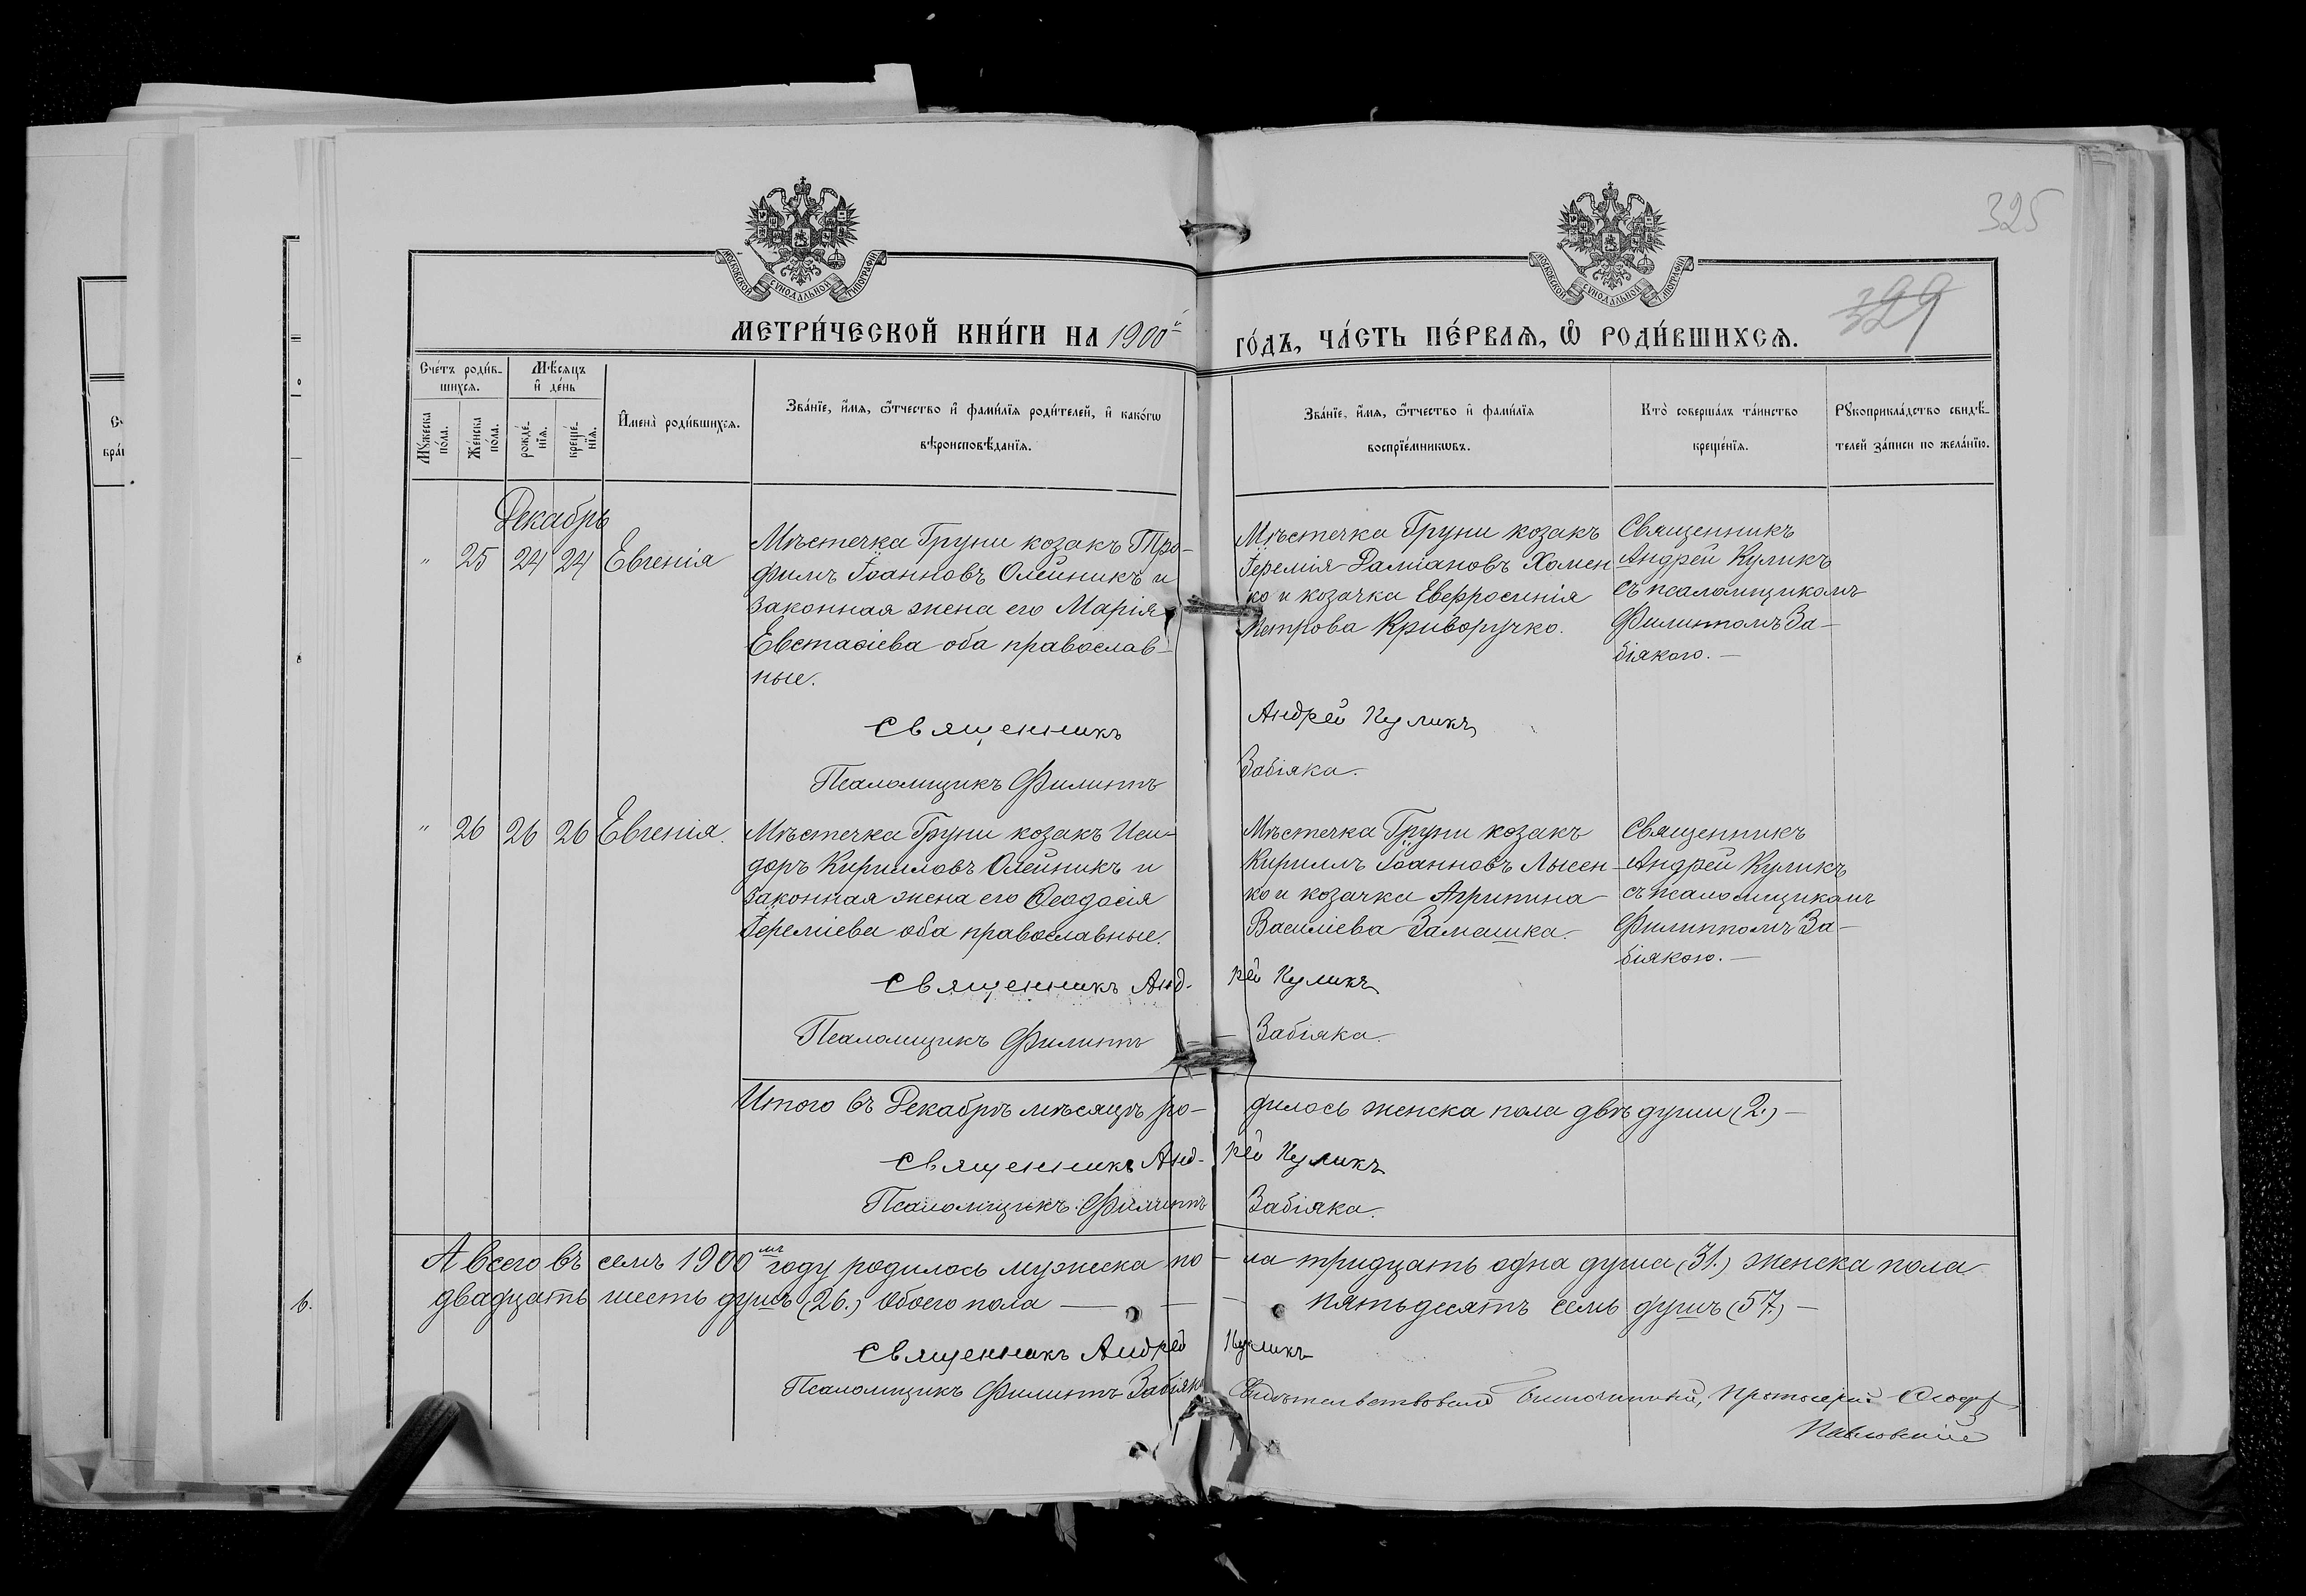 325
329
МОСКОВСКОЙ СѴНОДАЛЬНОЙ ТИПОГРАФІИ
МОСКОВСКОЙ СѴНОДАЛЬНОЙ ТИПОГРАФІИ
МЕТРИ́ЧЕСКОЙ КНИ́ГИ НА 1900й го́дъ, ча́сть пе́рваѧ, ѽ роди́вшихсѧ.
Сче́тъ роди́в-
шихсѧ.
Мѣ́сѧцъ
и҆ де́нь
Мꙋ́жеска
по́ла.
Же́нска
по́ла.
рожде́-
нїѧ.
креще́-
нїѧ.
И҆мена̀ роди́вшихсѧ.
Зва́нїе, и҆́мѧ, ѻ҆́тчество и҆ фами́лїѧ роди́телей, и҆ како́гѡ
вѣроисповѣ́данїѧ.
Зва́нїе, и҆́мѧ, ѻ҆́тчество и҆ фами́лїѧ
воспрїе́мникѡвъ.
Кто̀ соверша́лъ та́инство
креще́нїѧ.
Рꙋкоприкла́дство свидѣ́-
телей за́писи по жела́нїю.
Декабрь
" 25 24 24 Евгенія
Мѣстечка Груни козакъ Тро-
фимъ Іоанновъ Олейникъ и
законная жена его Марія
Евстафіева оба православ-
ные.
Мѣстечка Груни козакъ
Іеремія Даміановъ Хомен
ко и козачка Евфросинія
Петрова Криворучко.
Священникъ
Андрей Куликъ
съ псаломщикомъ
Филиппомъ За-
біякою.
Священникъ Андрей Куликъ
Псаломщикъ Филиппъ Забіяка.
" 26 26 26 Евгенія.
Мѣстечка Груни козакъ Иси-
доръ Кирилловъ Олейникъ и
законная жена его Ѳеодосія
Іереміева оба православные.
Мѣстечка Груни козакъ
Кириллъ Іоанновъ Лысен-
ко и козачка Агрипина
Василіева Замашка.
Священникъ
Андрей Куликъ
съ псаломщикомъ
Филиппомъ За-
біякою.
Священникъ Анд-рей Куликъ
Псаломщикъ Филиппъ Забіяка.
Итого въ Декабрѣ мѣсяцѣ ро-дилось женска пола двѣ души (2.)
Священникъ Анд-рей Куликъ
Псаломщикъ Филиппъ Забіяка.
А всего въ семъ 1900мъ году родилось мужеска по-ла тридцать одна душа (31.) женска пола
двадцать шесть душъ (26.) Обоего пола — пятьдесятъ семь душъ (57.)
Священникъ Андрей Куликъ
Псаломщикъ Филиппъ Забіяка
Свидѣтельствовалъ Благочинный, Протоіерей
Павловскій